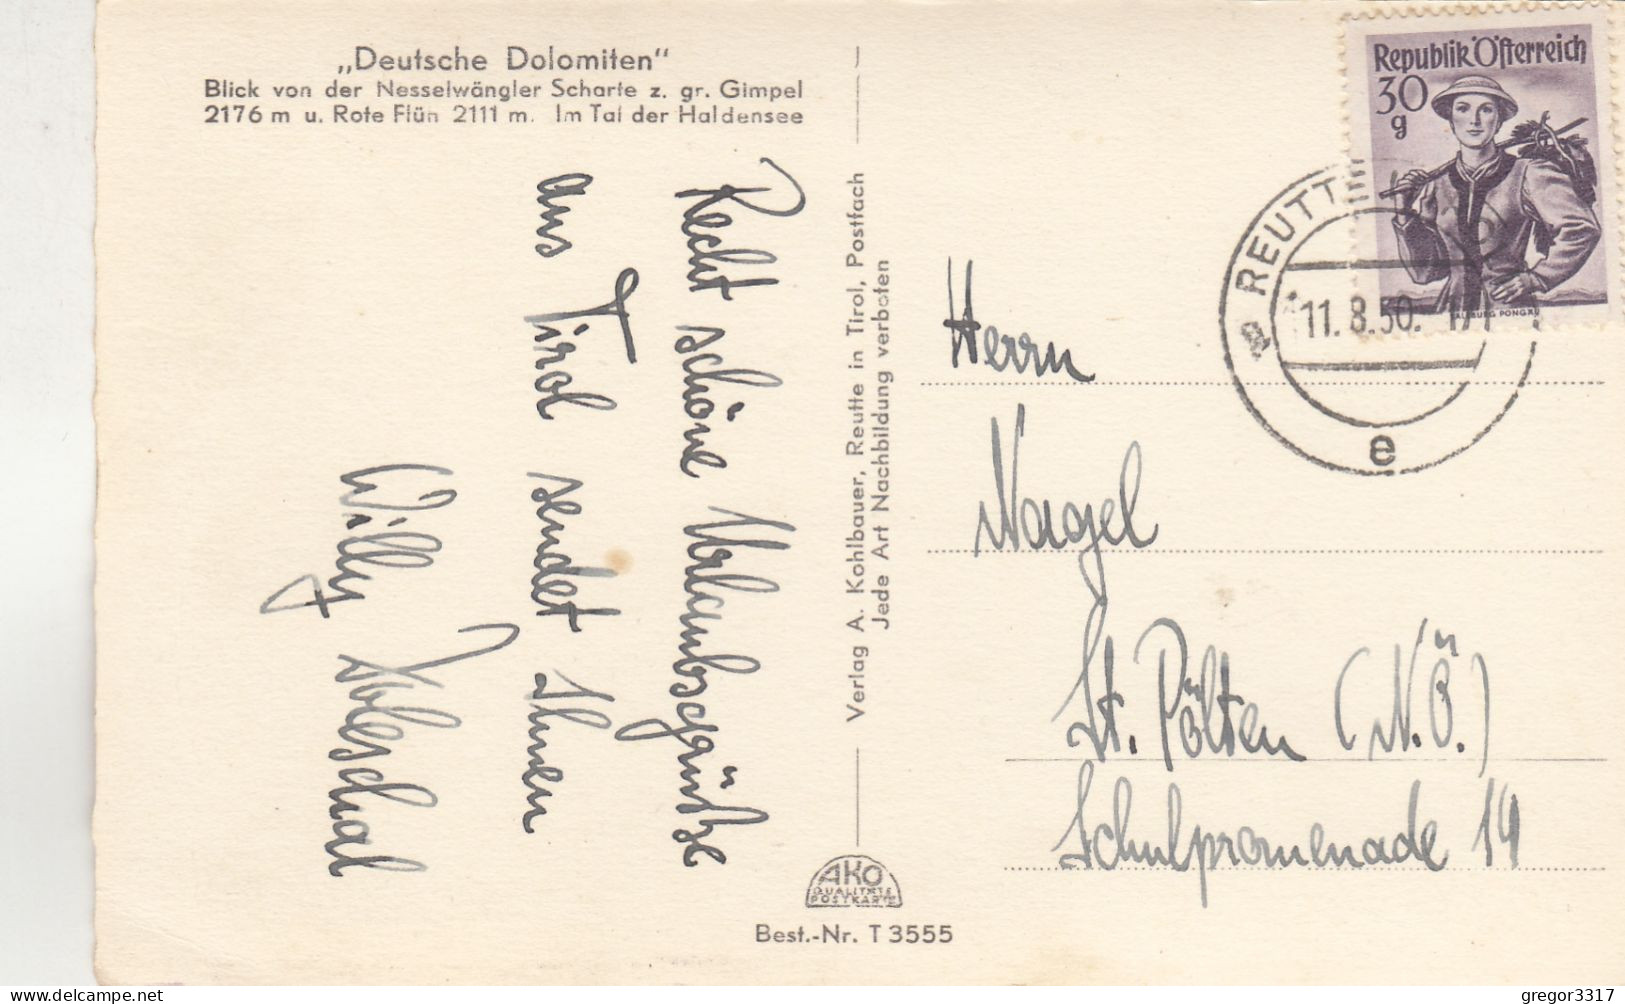 „Deutsche Dolomiten"
Blick von der Nesselwängler Scharte z. gr. Gimpel
2176 m u. Rote Flüh 2111 m. Im Tal der Haldensee
Recht schöne Urlaubsgrüße
aus Tirol sendet Ihnen
Willy
Verlag A. Kohlbauer, Reutte in Tirol, Postfach
Jede Art Nachbildung verboten
AKO
QUALITÄTS
POSTKARTE
Best.-Nr. T 3555
Republik Österreich
30
g
SALZBURG PONGAU
REUTTE
11.8.50.
e
Herrn
Nagel
St. Pölten (N.Ö.)
Schulpromenade 14
gregor3317